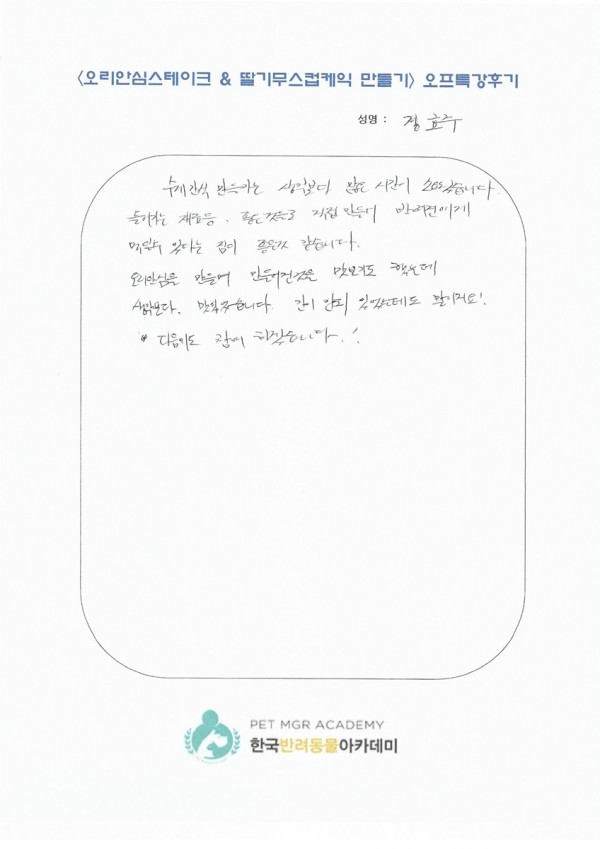 <오리안심스테이크 & 딸기무스컵케익 만들기> 오프특강후기
성명 : 정효주
수제간식 만들기는 생각보다 많은 시간이 소요됐습니다.
들어가는 재료들, 좋은것으로 직접 만들어 반려견에게
먹일수 있다는 점이 좋은것 같습니다.
오리안심을 만들며 만들어진것을 맛보기도 했는데
생각보다, 맛있었습니다. 간이 안되 있었는데도 말이지요!
* 다음에도 참여 하겠습니다~!
PET MGR ACADEMY
한국반려동물아카데미